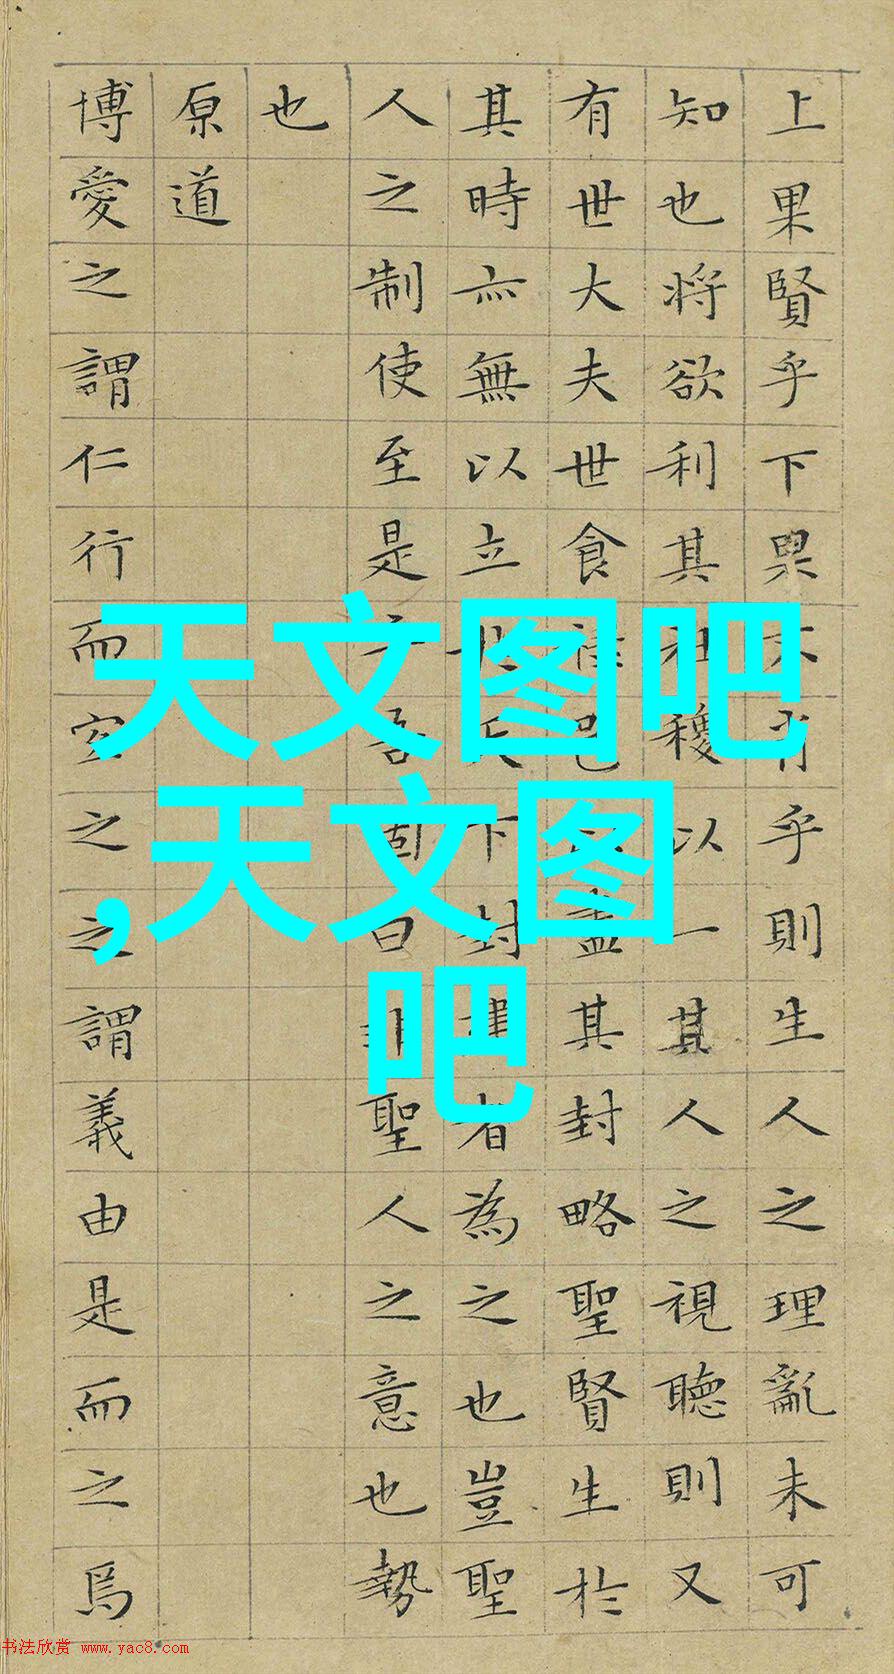 上果賢乎下果不肖乎則生人之理亂未可
知也將欲利其社稷以一其人之視聽則又
有世大夫世食祿邑以盡其封略聖賢生於
其時亦無以立於天下封建者為之也豈聖
人之制使至是乎吾固曰非聖人之意也勢
也
原道
博愛之謂仁行而宜之之謂義由是而之焉
天文图吧
,天文图
吧
书法欣赏 www.yac8.com